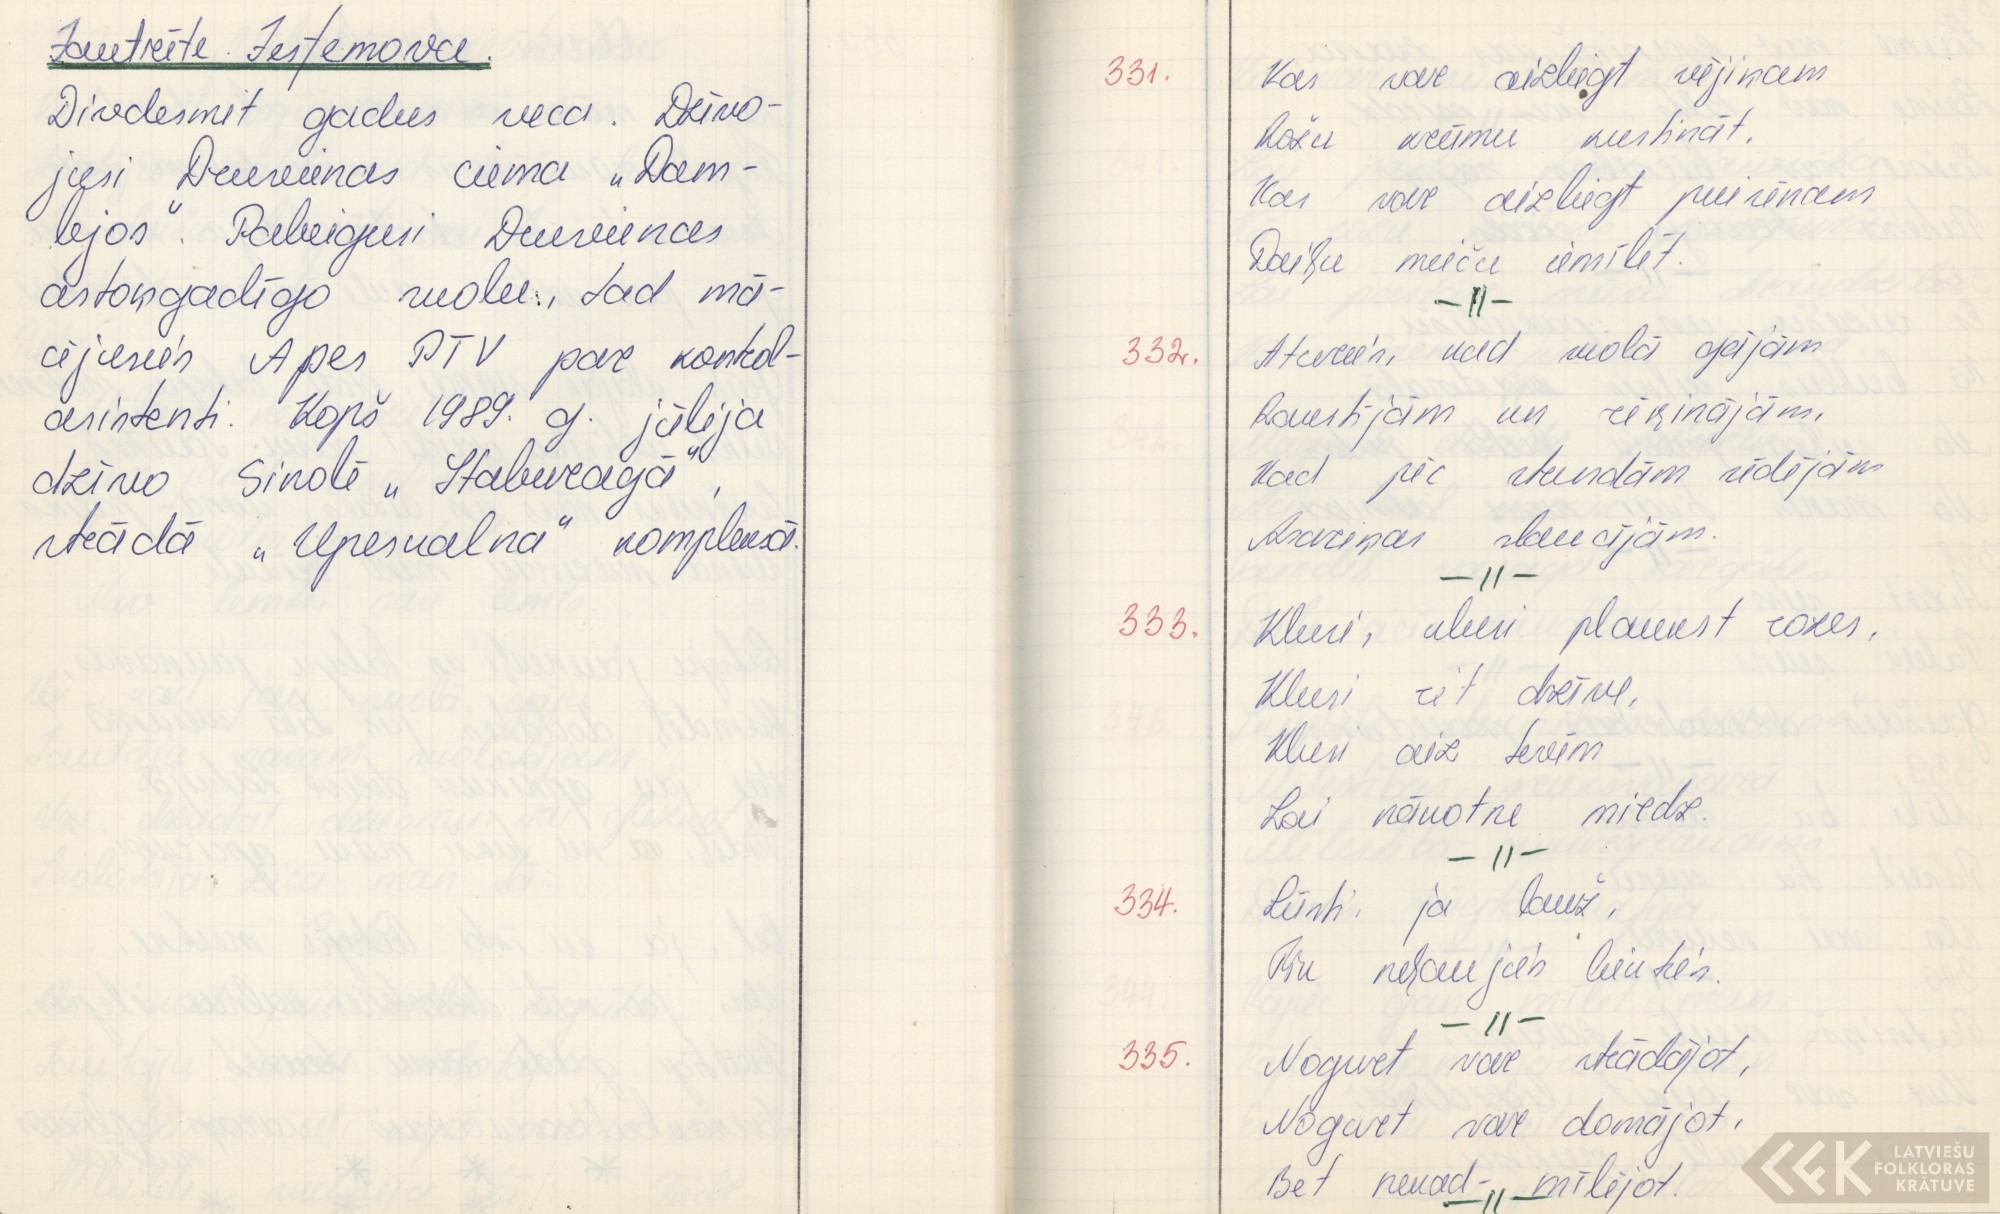 Jautrīte Jestemova.
Divdesmit gadus veca. Dzīvo-
jusi Dauksenas ciema „Dam-
bjos“. Pabeigusi
astoņgadīgo skolu, tad mā-
cījusies Apes PTV par kontrol-
asistenti. Kopš 1989. g. jūlija
dzīvo Sinolē „Staburagā“,
strādā „Upeskalna“ kompleksā.
331. Kas var aizliegt vējiņam
Rožu krūmu kustināt,
Kas var aizliegt puisēnam
Daiļu meiču iemīlēt.
–//–
332. Atceries, kad skolā gājām
Draustījām un rēķinājām,
Kad pēc stundām sēdējām
Asariņas slaucījām.
–//–
333. Klusi, klusi plaukst rozes,
Klusi rit dzīve,
Klusi aiz tevim
Lai nākotne miedz.
–//–
334. Lūsti, ja lauž,
Bet neļaujies liekties.
–//–
335. Nogurt var strādājot,
Nogurt var domājot,
Bet nekad – mīlējot.
–//–
LATVIEŠU
FOLKLORAS
KRĀTUVE